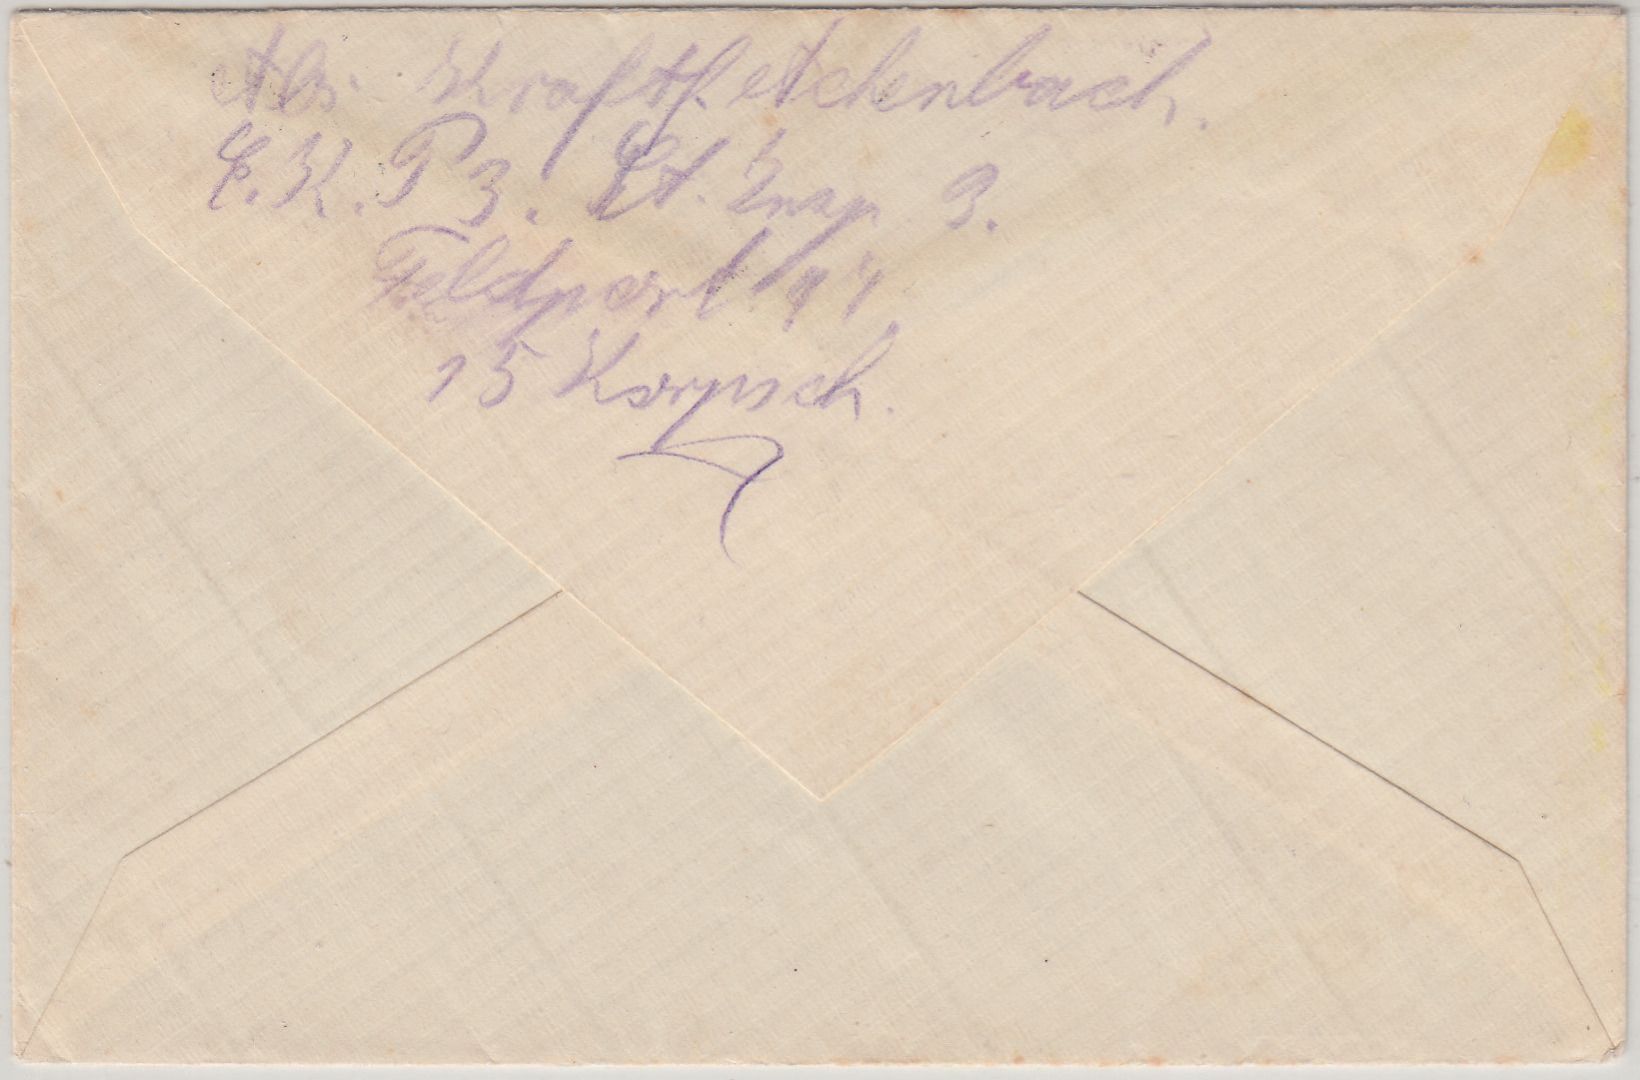 Abs. Kraftf. Achenbach.
E.K.P 3. Et. Insp 3.
Feldpost 194.
15 Korpsch.